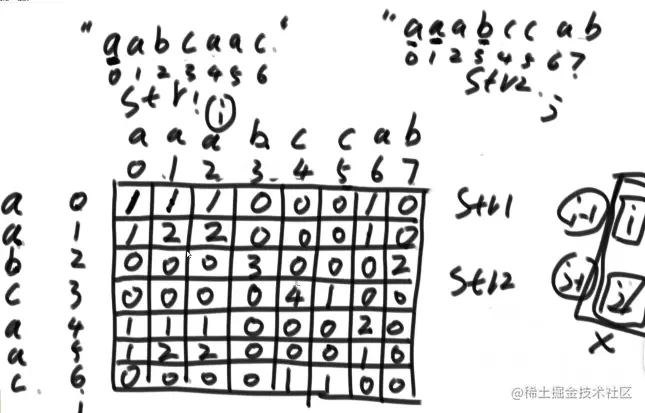 "aabcaac"
0 1 2 3 4 5 6
str1 i
"aaabccab
0 1 2 3 4 5 6 7
str2 j
a a a b c c a b
0 1 2 3 4 5 6 7
a 0 1 1 1 0 0 0 1 0
a 1 1 2 2 0 0 0 1 0
b 2 0 0 0 3 0 0 0 2
c 3 0 0 0 0 4 1 0 0
a 4 1 1 1 0 0 0 2 0
a 5 1 2 2 0 0 0 1 0
c 6 0 0 0 0 1 1 0 0
str1 i-1 i
str2 j-1 j
x
@稀土掘金技术社区